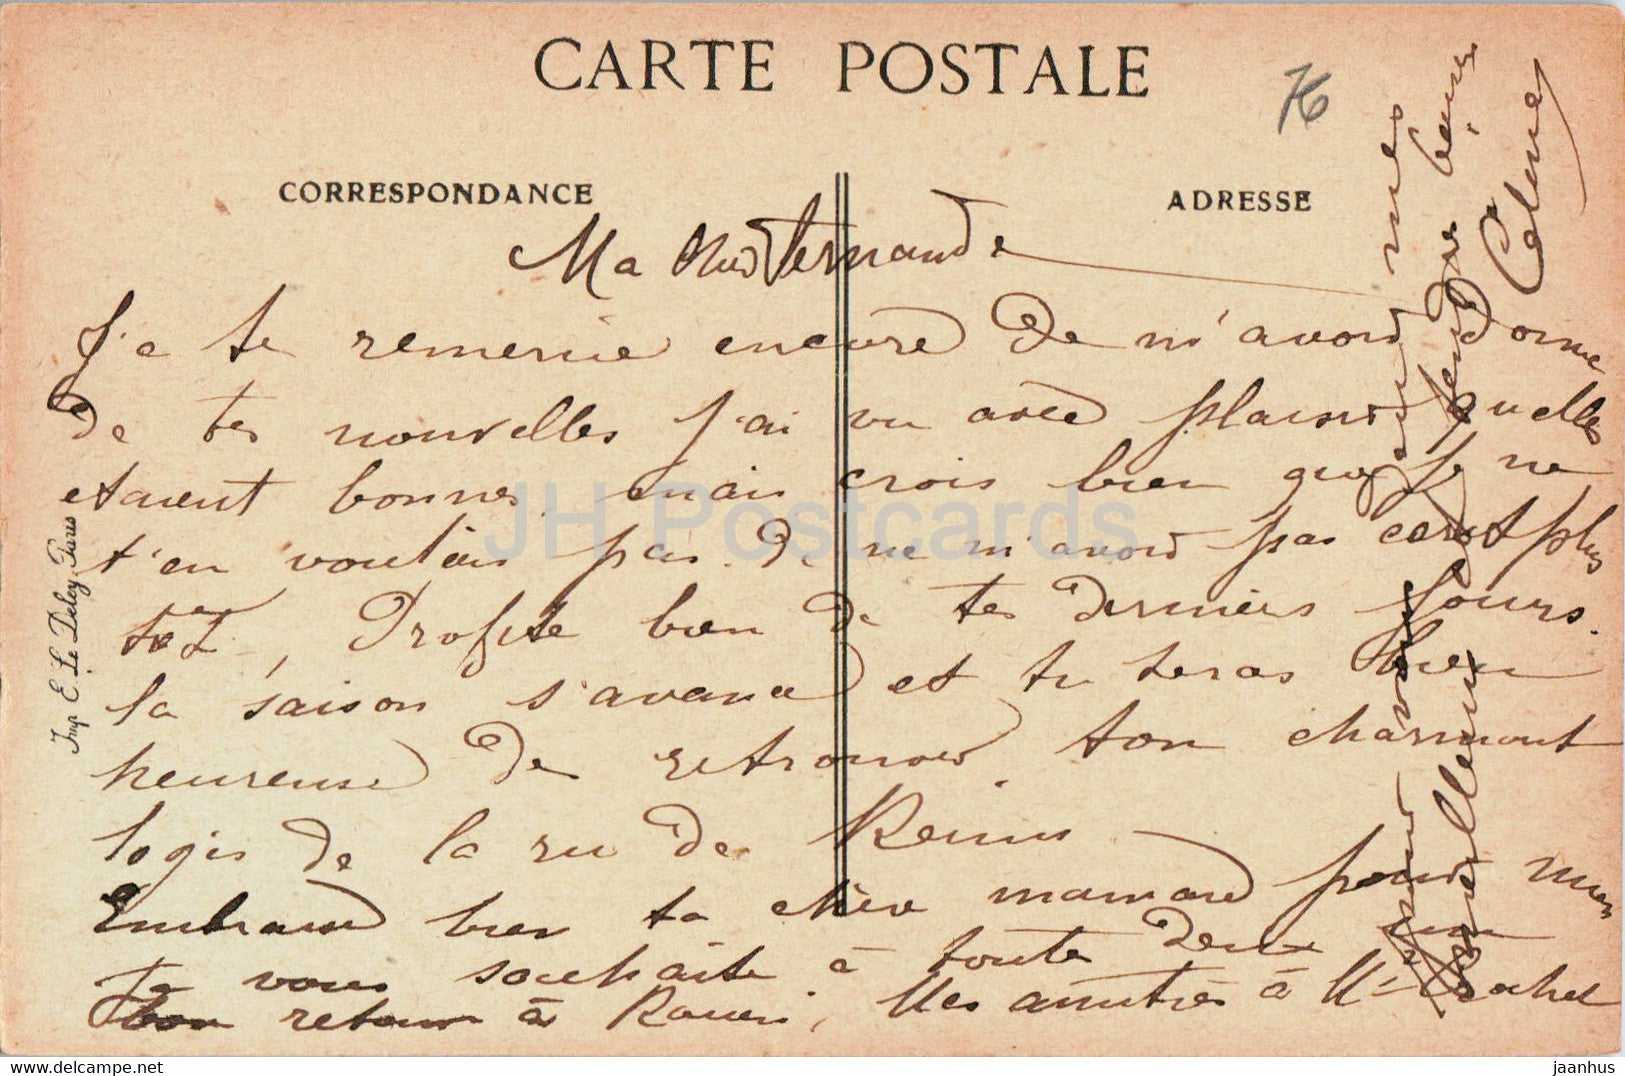 CARTE POSTALE
76
CORRESPONDANCE
ADRESSE
Ma Fernande
J'e te remercie encore de m'avoir donne
de tes nouvelles j'ai vu avec plaisir quelles
etaient bonnes, mais crois bien que je ne
t'en voulais pas de ne m'avoir pas ecrit plus
tot, Profite bien de tes derniers jours.
la saison s'avance et tu seras bien
heureuse de retrouver ton charmant
logis de la ru de Reims
Embrasse bien ta chère maman pour moi
Je vous souhaite à toute deux un
bon retour à Rouen, Mes amitiés à Mr Rachel
pour vous
mes
baisers
Céline
Imp. E. Le Deley, Paris
JH Postcards
jaanhus
www.hippostcard.com/store/jh-postcards